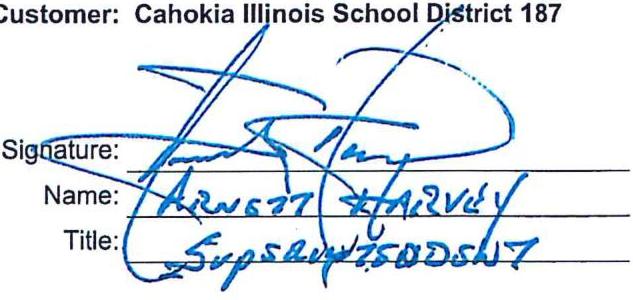 Customer: Cahokia Illinois School District 187
Signature:
Name: ARNETT HARVEY
Title: Superintendent